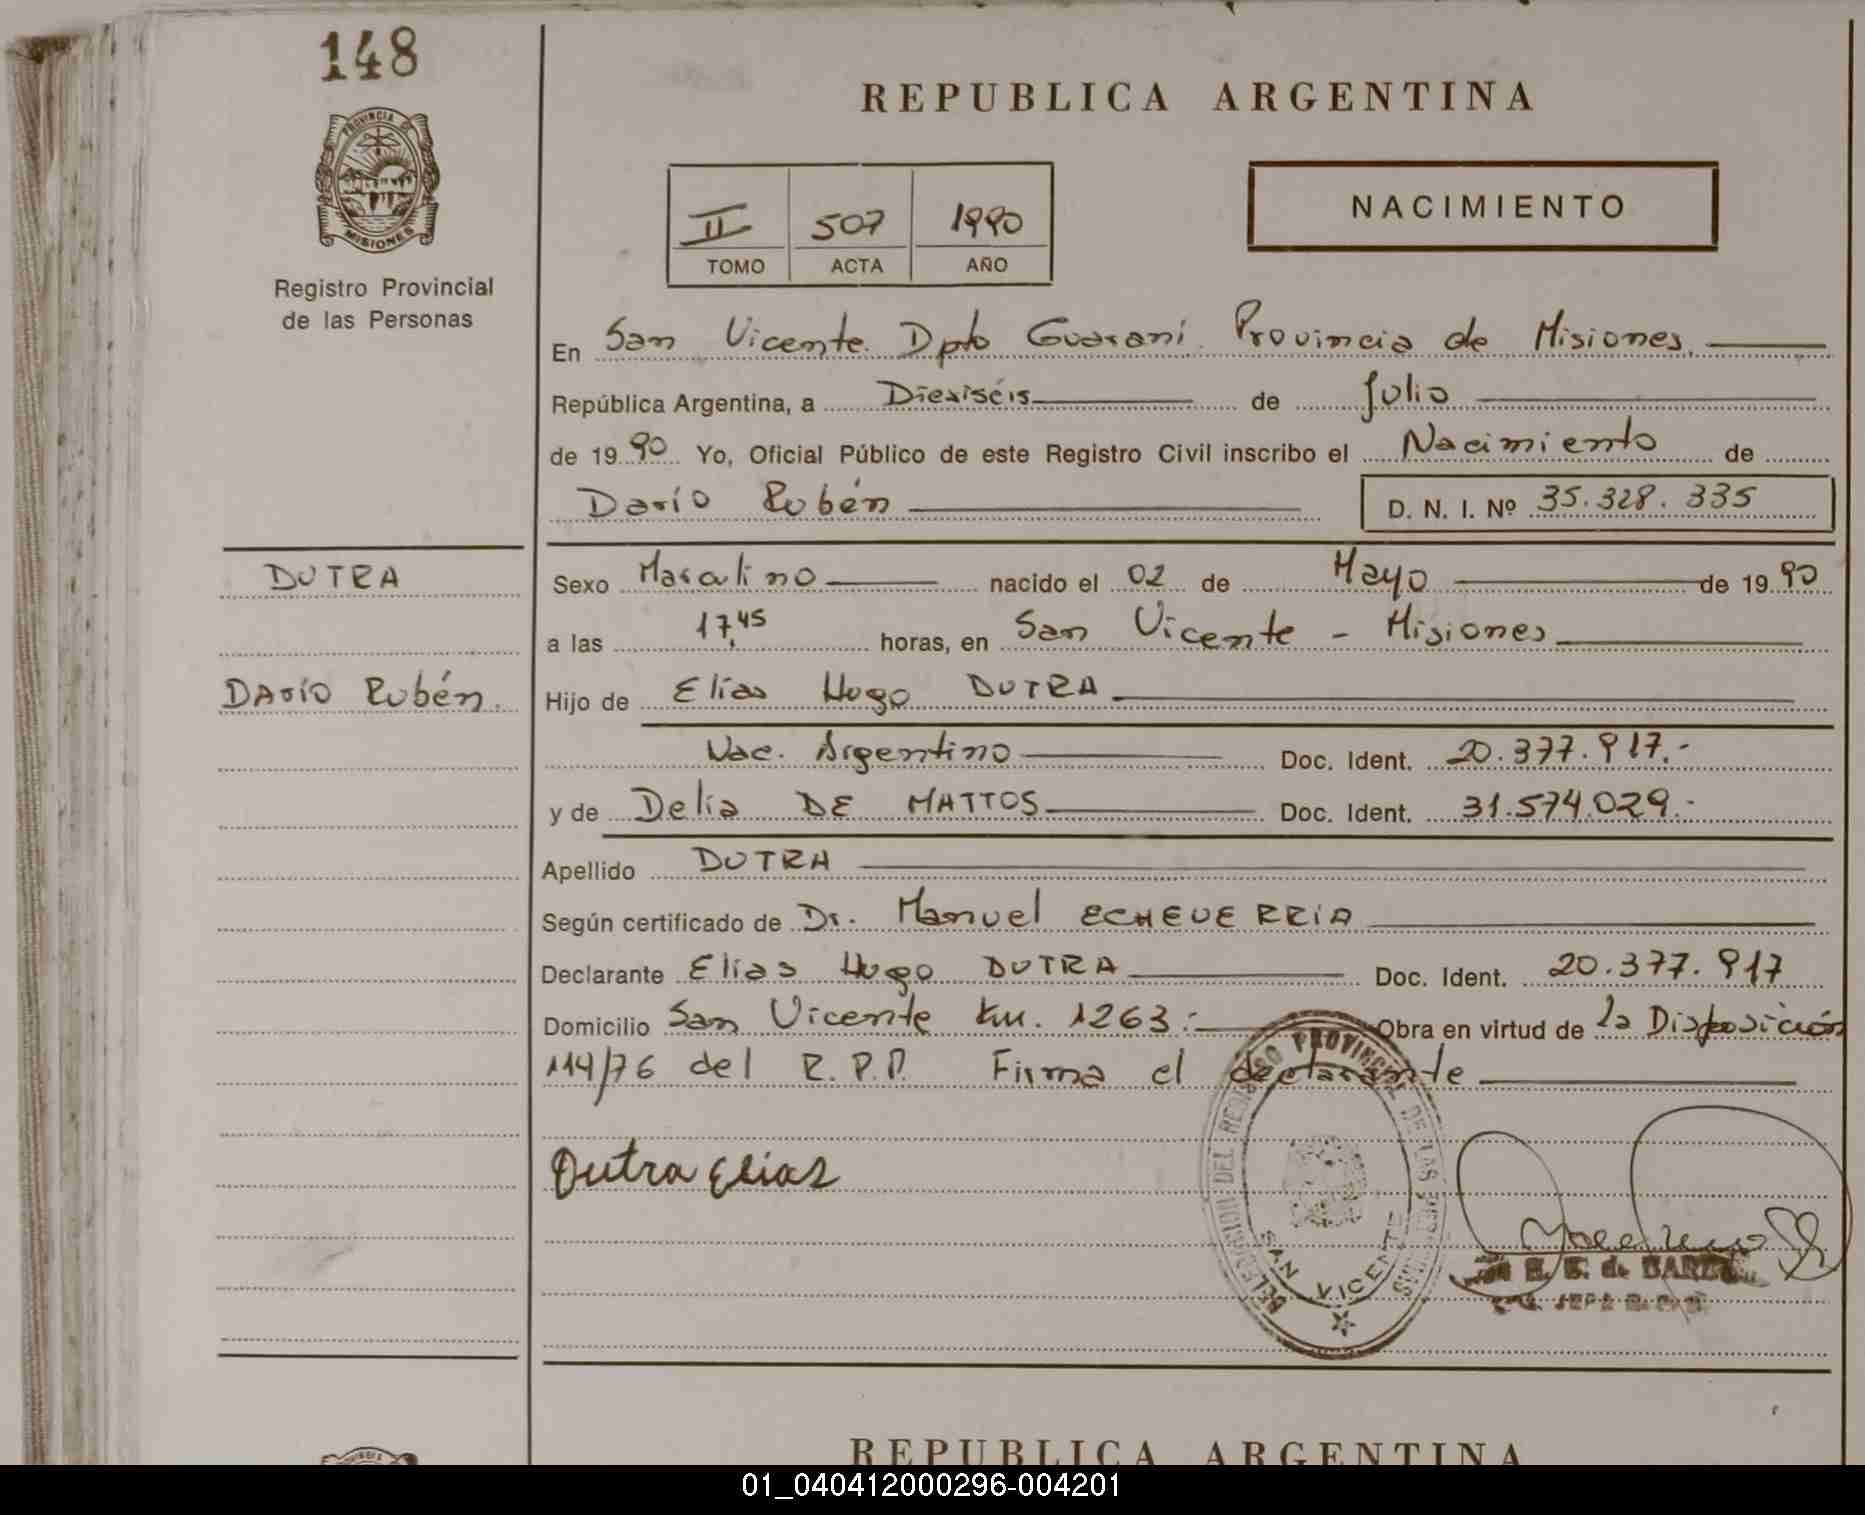 148
REPUBLICA ARGENTINA
PROVINCIA DE
MISIONES
Registro Provincial
de las Personas
II 507 1990
TOMO ACTA AÑO
NACIMIENTO
En San Vicente. Dpto Guaraní. Provincia de Misiones.
República Argentina, a Dieziséis de Julio
de 1990 Yo, Oficial Público de este Registro Civil inscribo el Nacimiento de
Darío Rubén D. N. I. Nº 35.328.335
DUTRA
Sexo Masculino nacido el 02 de Mayo de 1990
a las 17,45 horas, en San Vicente - Misiones
Darío Rubén.
Hijo de Elías Hugo DUTRA
Nac. Argentino Doc. Ident. 20.377.917.-
y de Delia DE MATTOS Doc. Ident. 31.574.029.-
Apellido DUTRA
Según certificado de Dr. Manuel ECHEVERRIA
Declarante Elias Hugo DUTRA Doc. Ident. 20.377.917
Domicilio San Vicente Km. 1263:- Obra en virtud de la Disposición
114/76 del R.P.P. Firma el declarante
Dutra Elias
DELEGACION DEL REGISTRO PROVINCIAL DE LAS PERSONAS
SAN VICENTE
REPUBLICA ARGENTINA
01_040412000296-004201